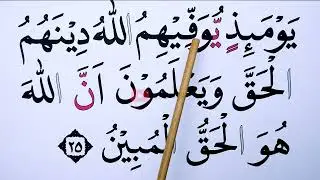 يَوْمَئِذٍ يُّوَفِّيْهِمُ اللّٰهُ دِيْنَهُمُ
الْحَقَّ وَيَعْلَمُوْنَ اَنَّ اللّٰهَ
هُوَ الْحَقُّ الْمُبِيْنُ ﴿٢٥﴾